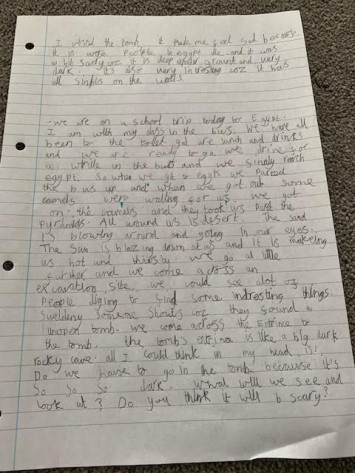 I visted the tomb it made me feel sad because
it is were People in egypt die and it was
a bit scary coz it is deep under ground and very
dark. it's also very intresting coz it has
all singles on the walls
we are on a school trip today to Egypt.
I am with my class in the bus. We have all
been to the toilet got are lunch and drinks
and we are ready to go we drive for
a while in the bus and we finaly reach
egypt. So when we got to Egypt we parced
the bus up and when we got out some
camels were waiting for us. we got
on the camels and they took us past the
Pyramids. All around us is desert. The sand
is blowing around and going in our eyes.
The Sun is blazing down at us and it is makeing
us hot and thirsty we go a little
further and we come across an
excavation site, we could see alot of
People diging to find some intresting things.
Suddenly someone shouts coz they found a
unopen tomb. we come across the entrince to
the tomb. the tombs entrince is like a big dark
rocky cave. all I could think in my head is!
Do we have to go in the tomb because it's
so so so dark. What will we see and
look at? Do you think it will b scary?